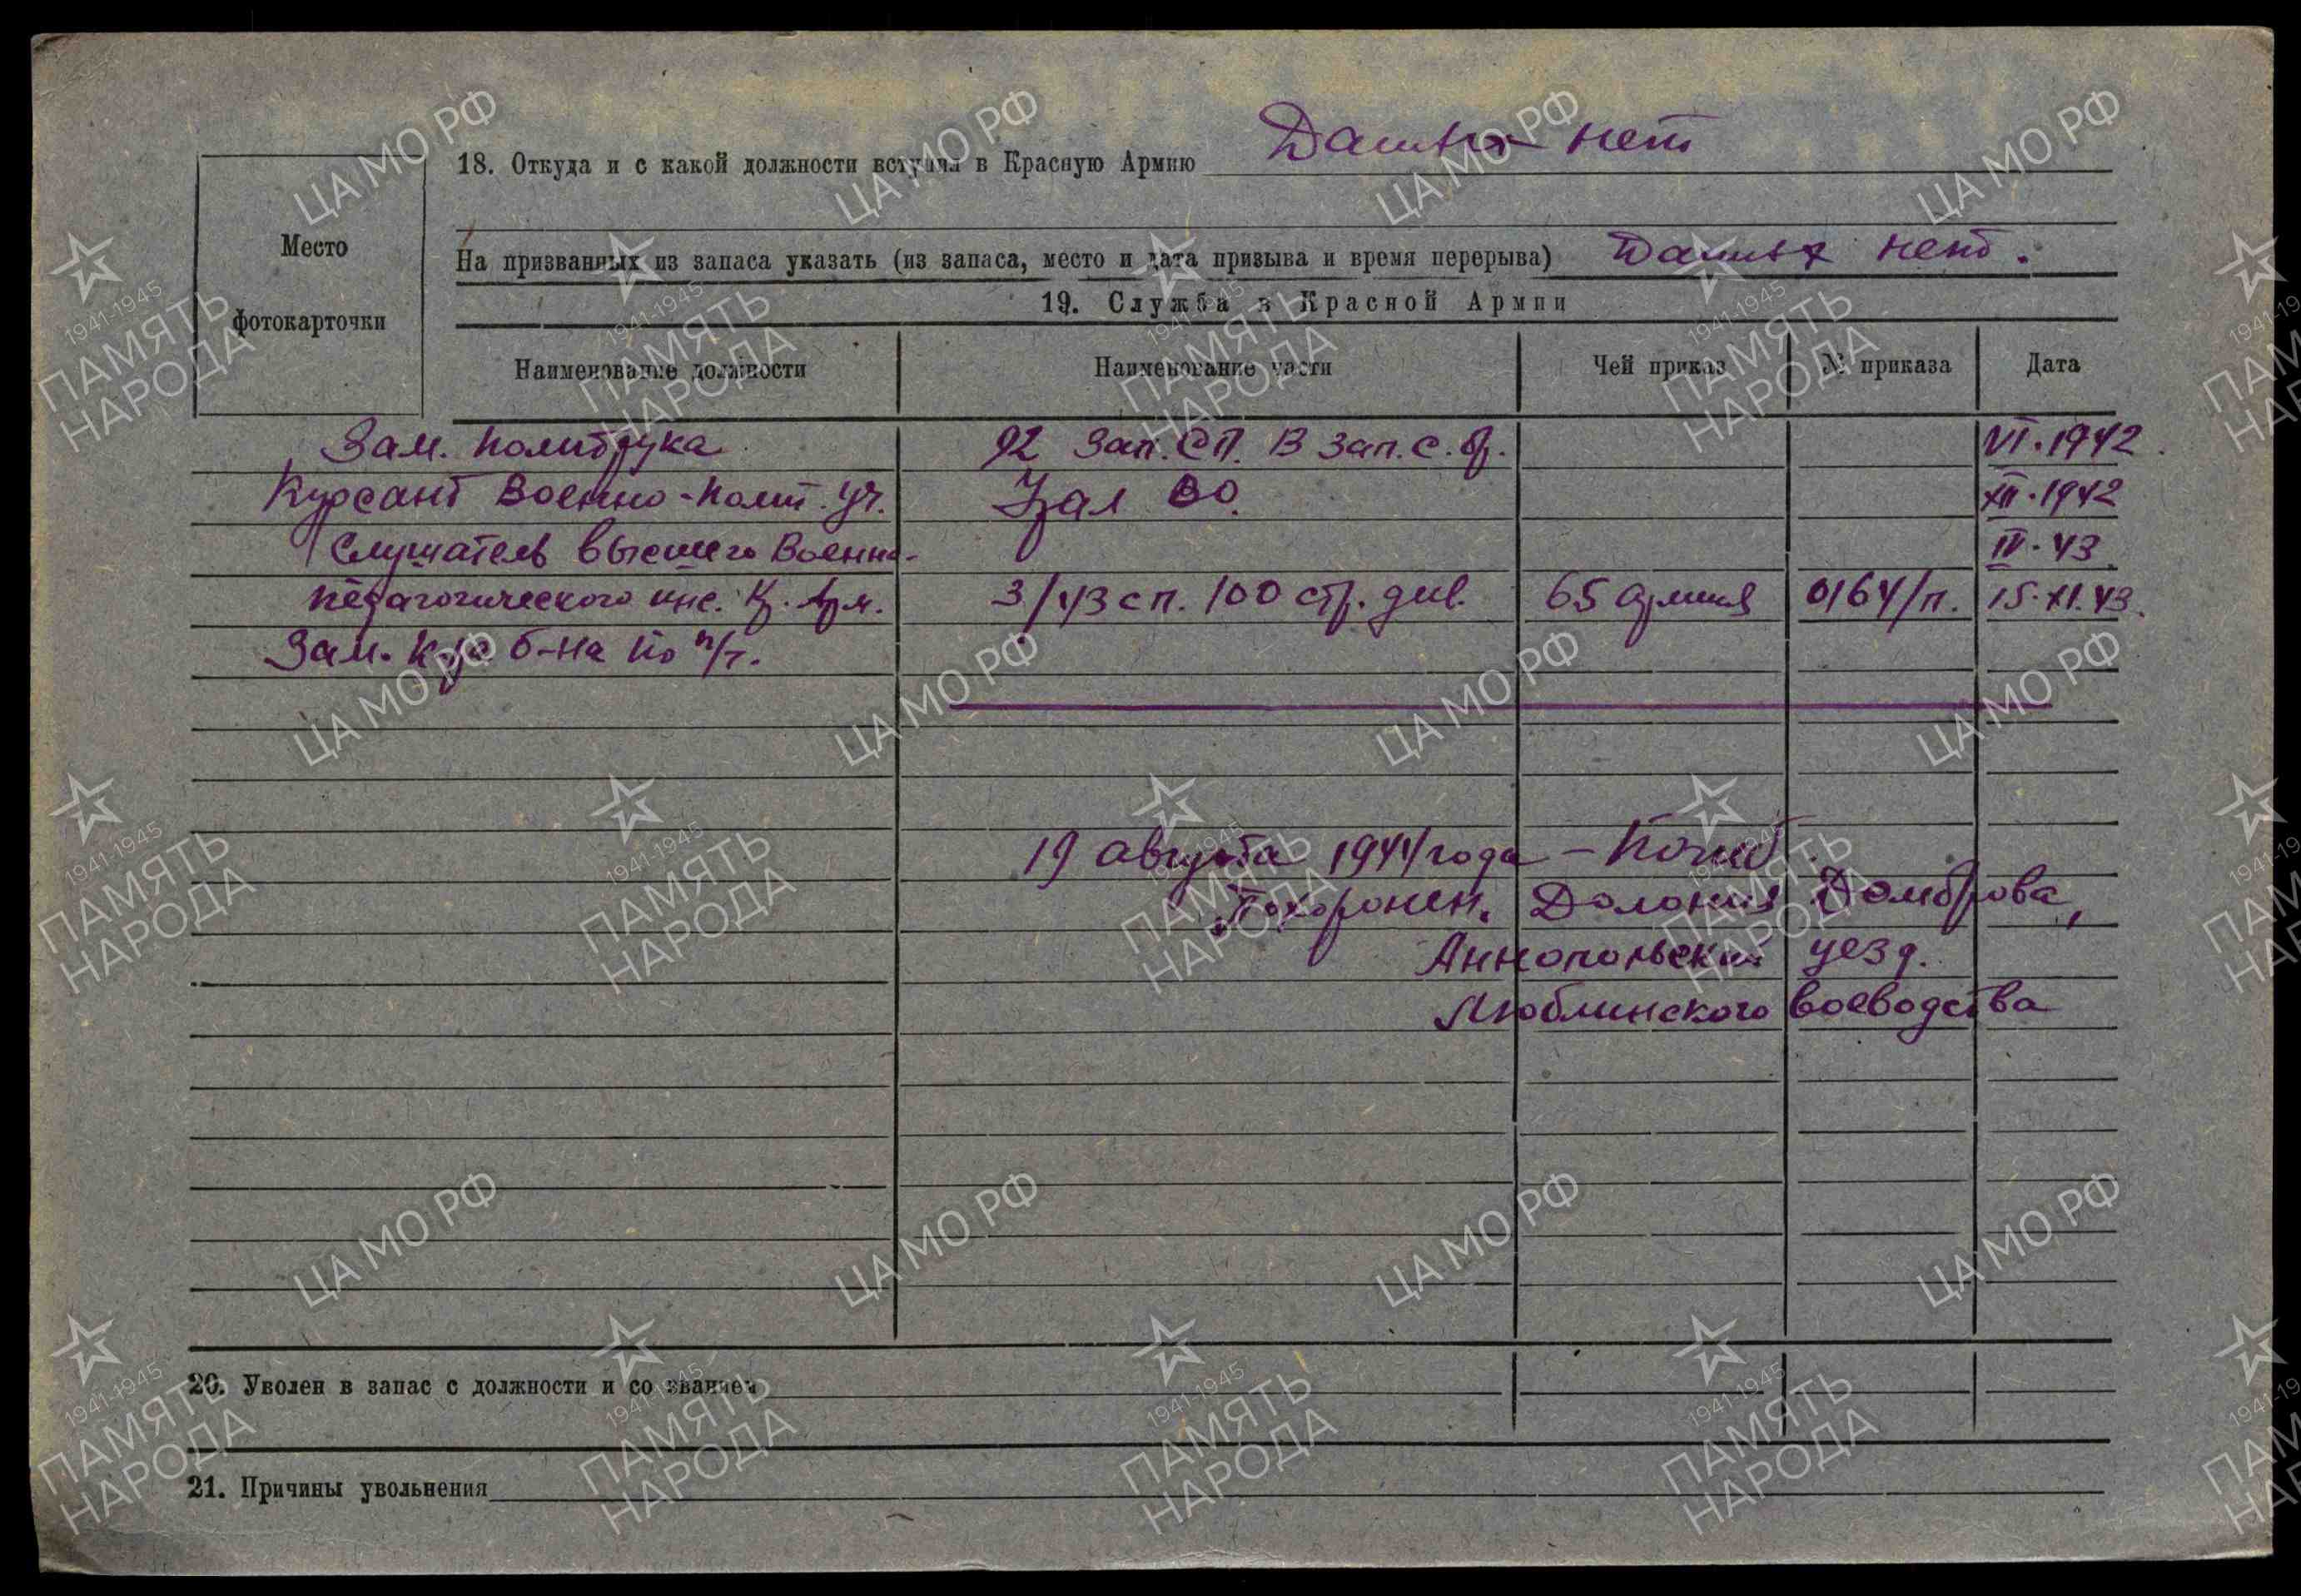 18. Откуда и с какой должности вступил в Красную Армию Данных нет
Место
фотокарточки
На призванных из запаса указать (из запаса, место и дата призыва и время перерыва) Данных нет.
19. Служба в Красной Армии
Наименование должности Наименование части Чей приказ № приказа Дата
Зам. политрука 92 Зап. СП. 13 зап. с. бр. VI.1942
Курсант Военно-полит. уч. Урал ВО. XII.1942
Слушатель высшего Военно- IV.43
педагогического инс. Кр. Арм. 3/43 сп. 100 стр. див. 65 армия 0164/п. 15.XI.43.
Зам. к-ра б-на по п/ч.
19 августа 1944 года - Погиб.
Похоронен. Долония Домброва,
Аннопольский уезд.
Люблинского воеводства
20. Уволен в запас с должности и со званием
21. Причины увольнения
ЦА МО РФ
1941-1945
ПАМЯТЬ
НАРОДА